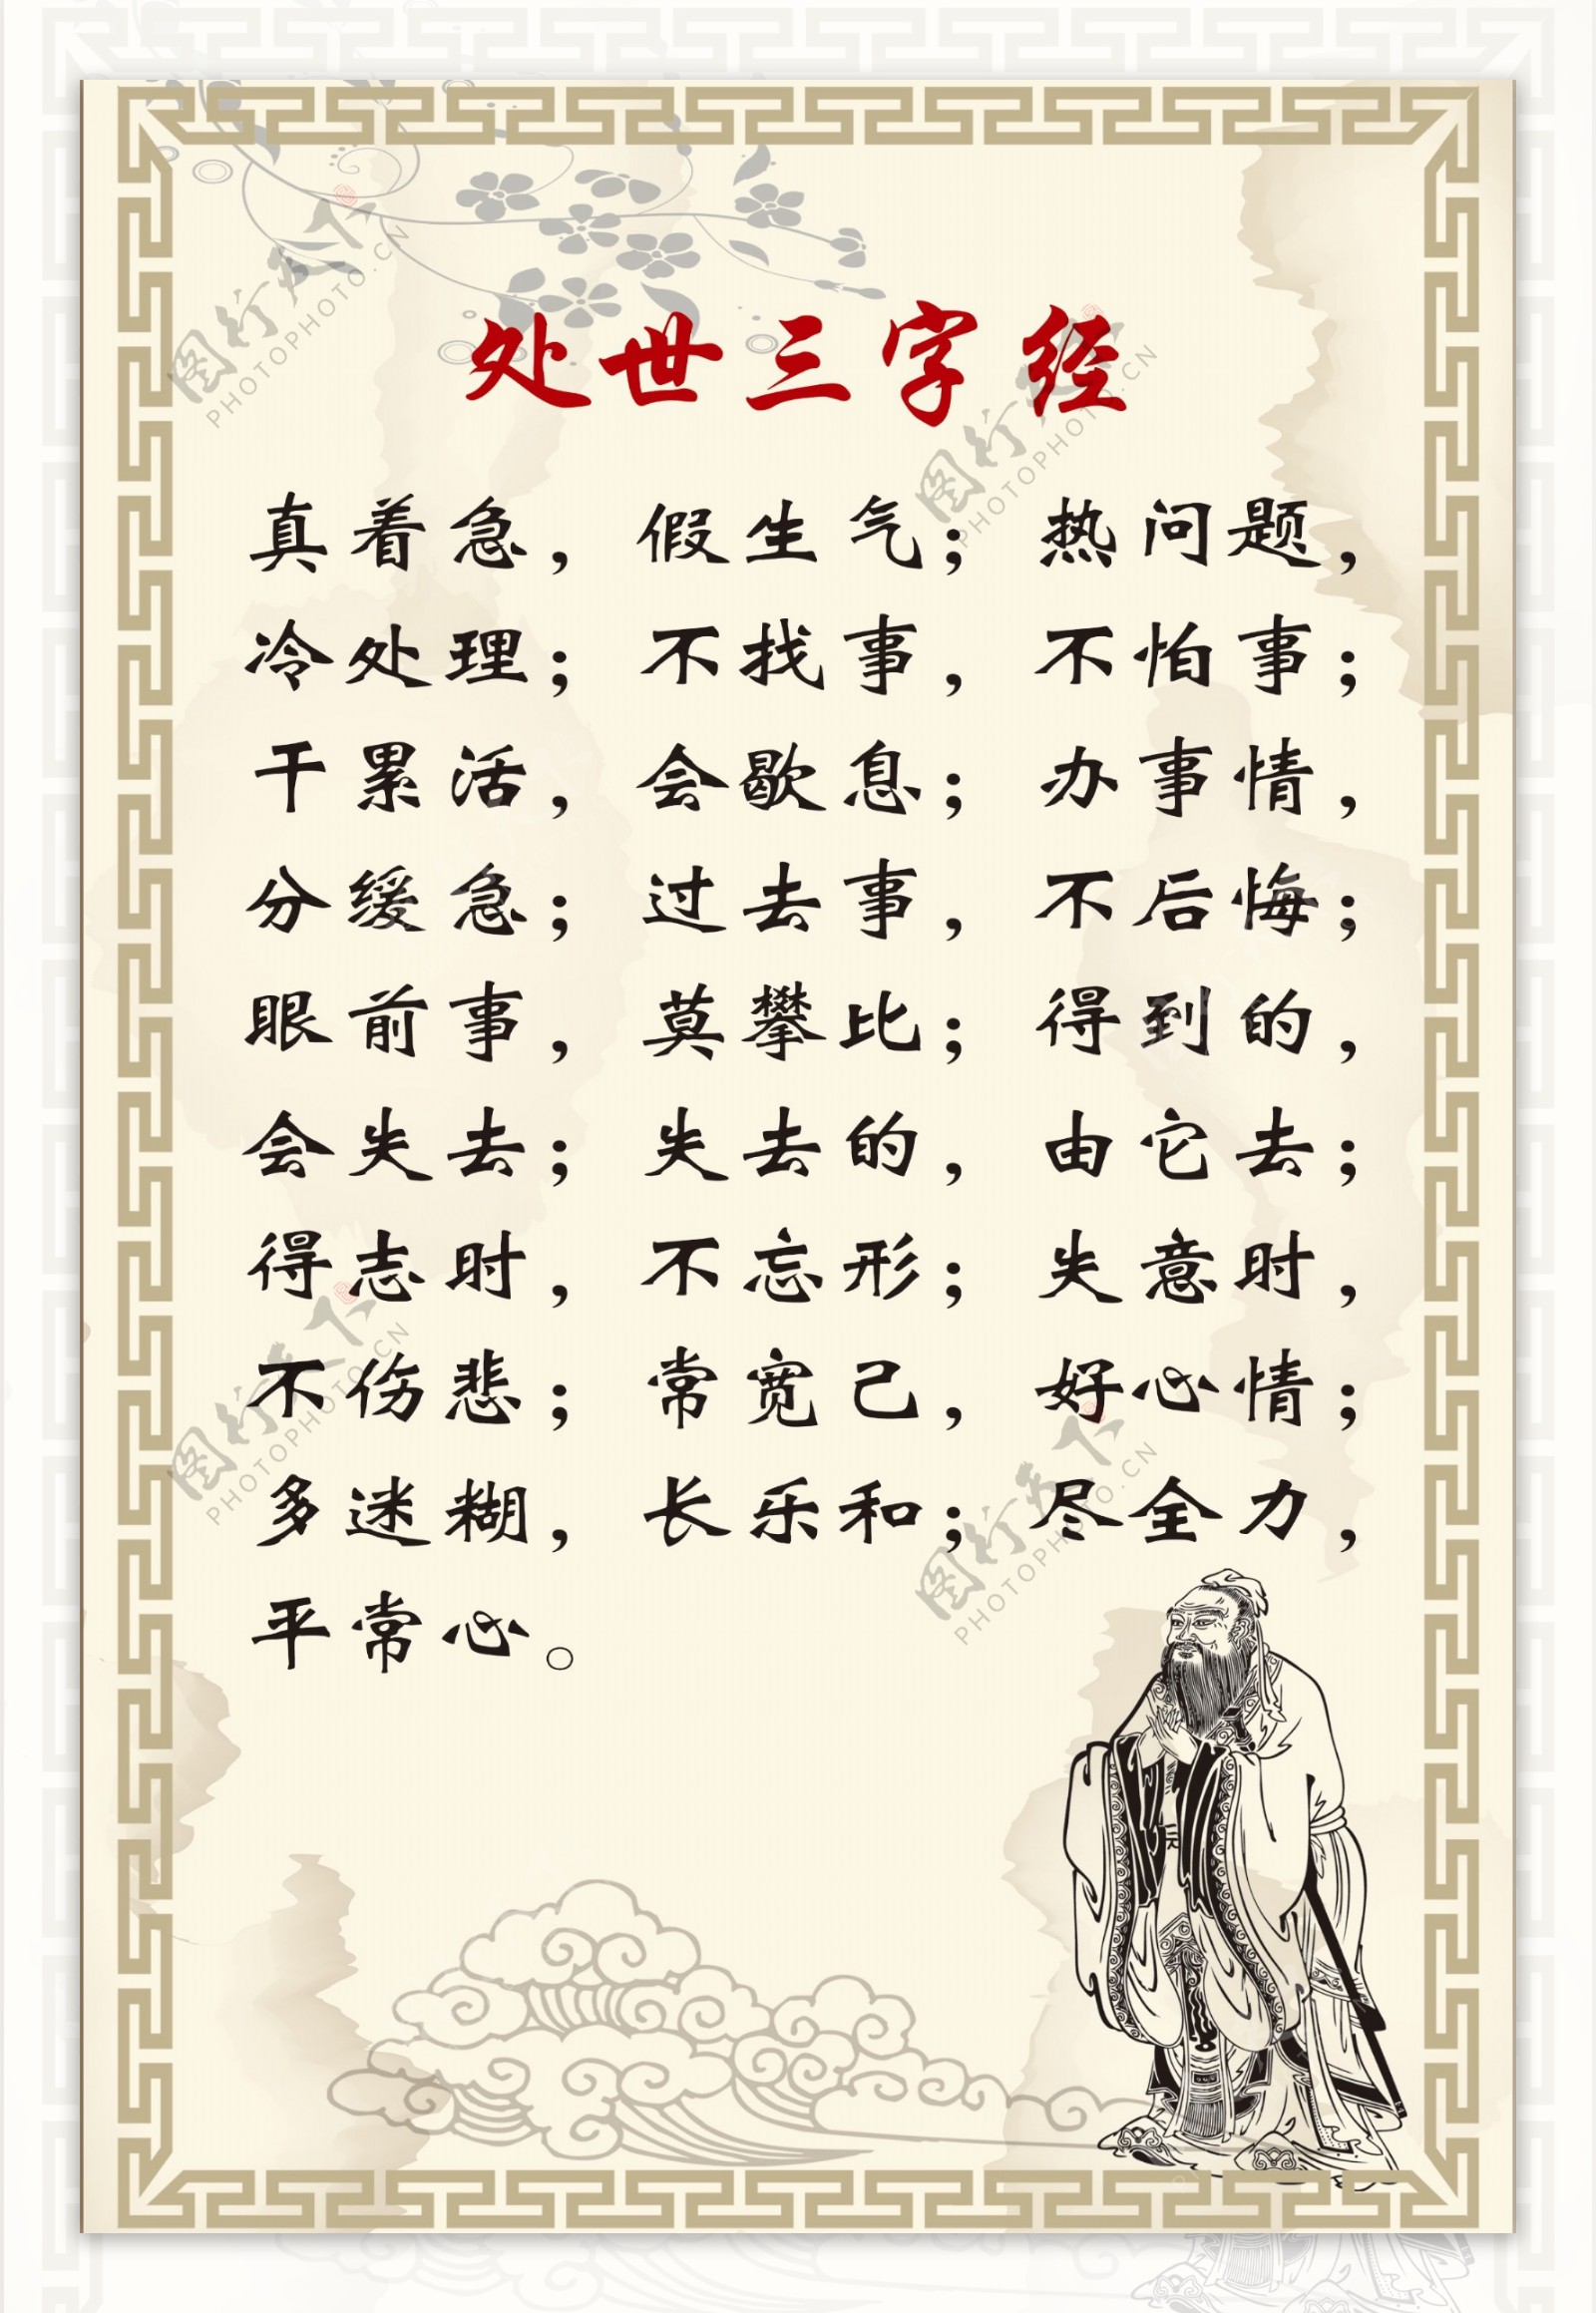 处世三字经
真着急，假生气；热问题，
冷处理；不找事，不怕事；
干累活，会歇息；办事情，
分缓急；过去事，不后悔；
眼前事，莫攀比；得到的，
会失去；失去的，由它去；
得志时，不忘形；失意时，
不伤悲；常宽己，好心情；
多迷糊，长乐和；尽全力，
平常心。
图行天下
PHOTOPHOTO.CN
图行天下
PHOTOPHOTO.CN
图行天下
PHOTOPHOTO.CN
图行天下
PHOTOPHOTO.CN